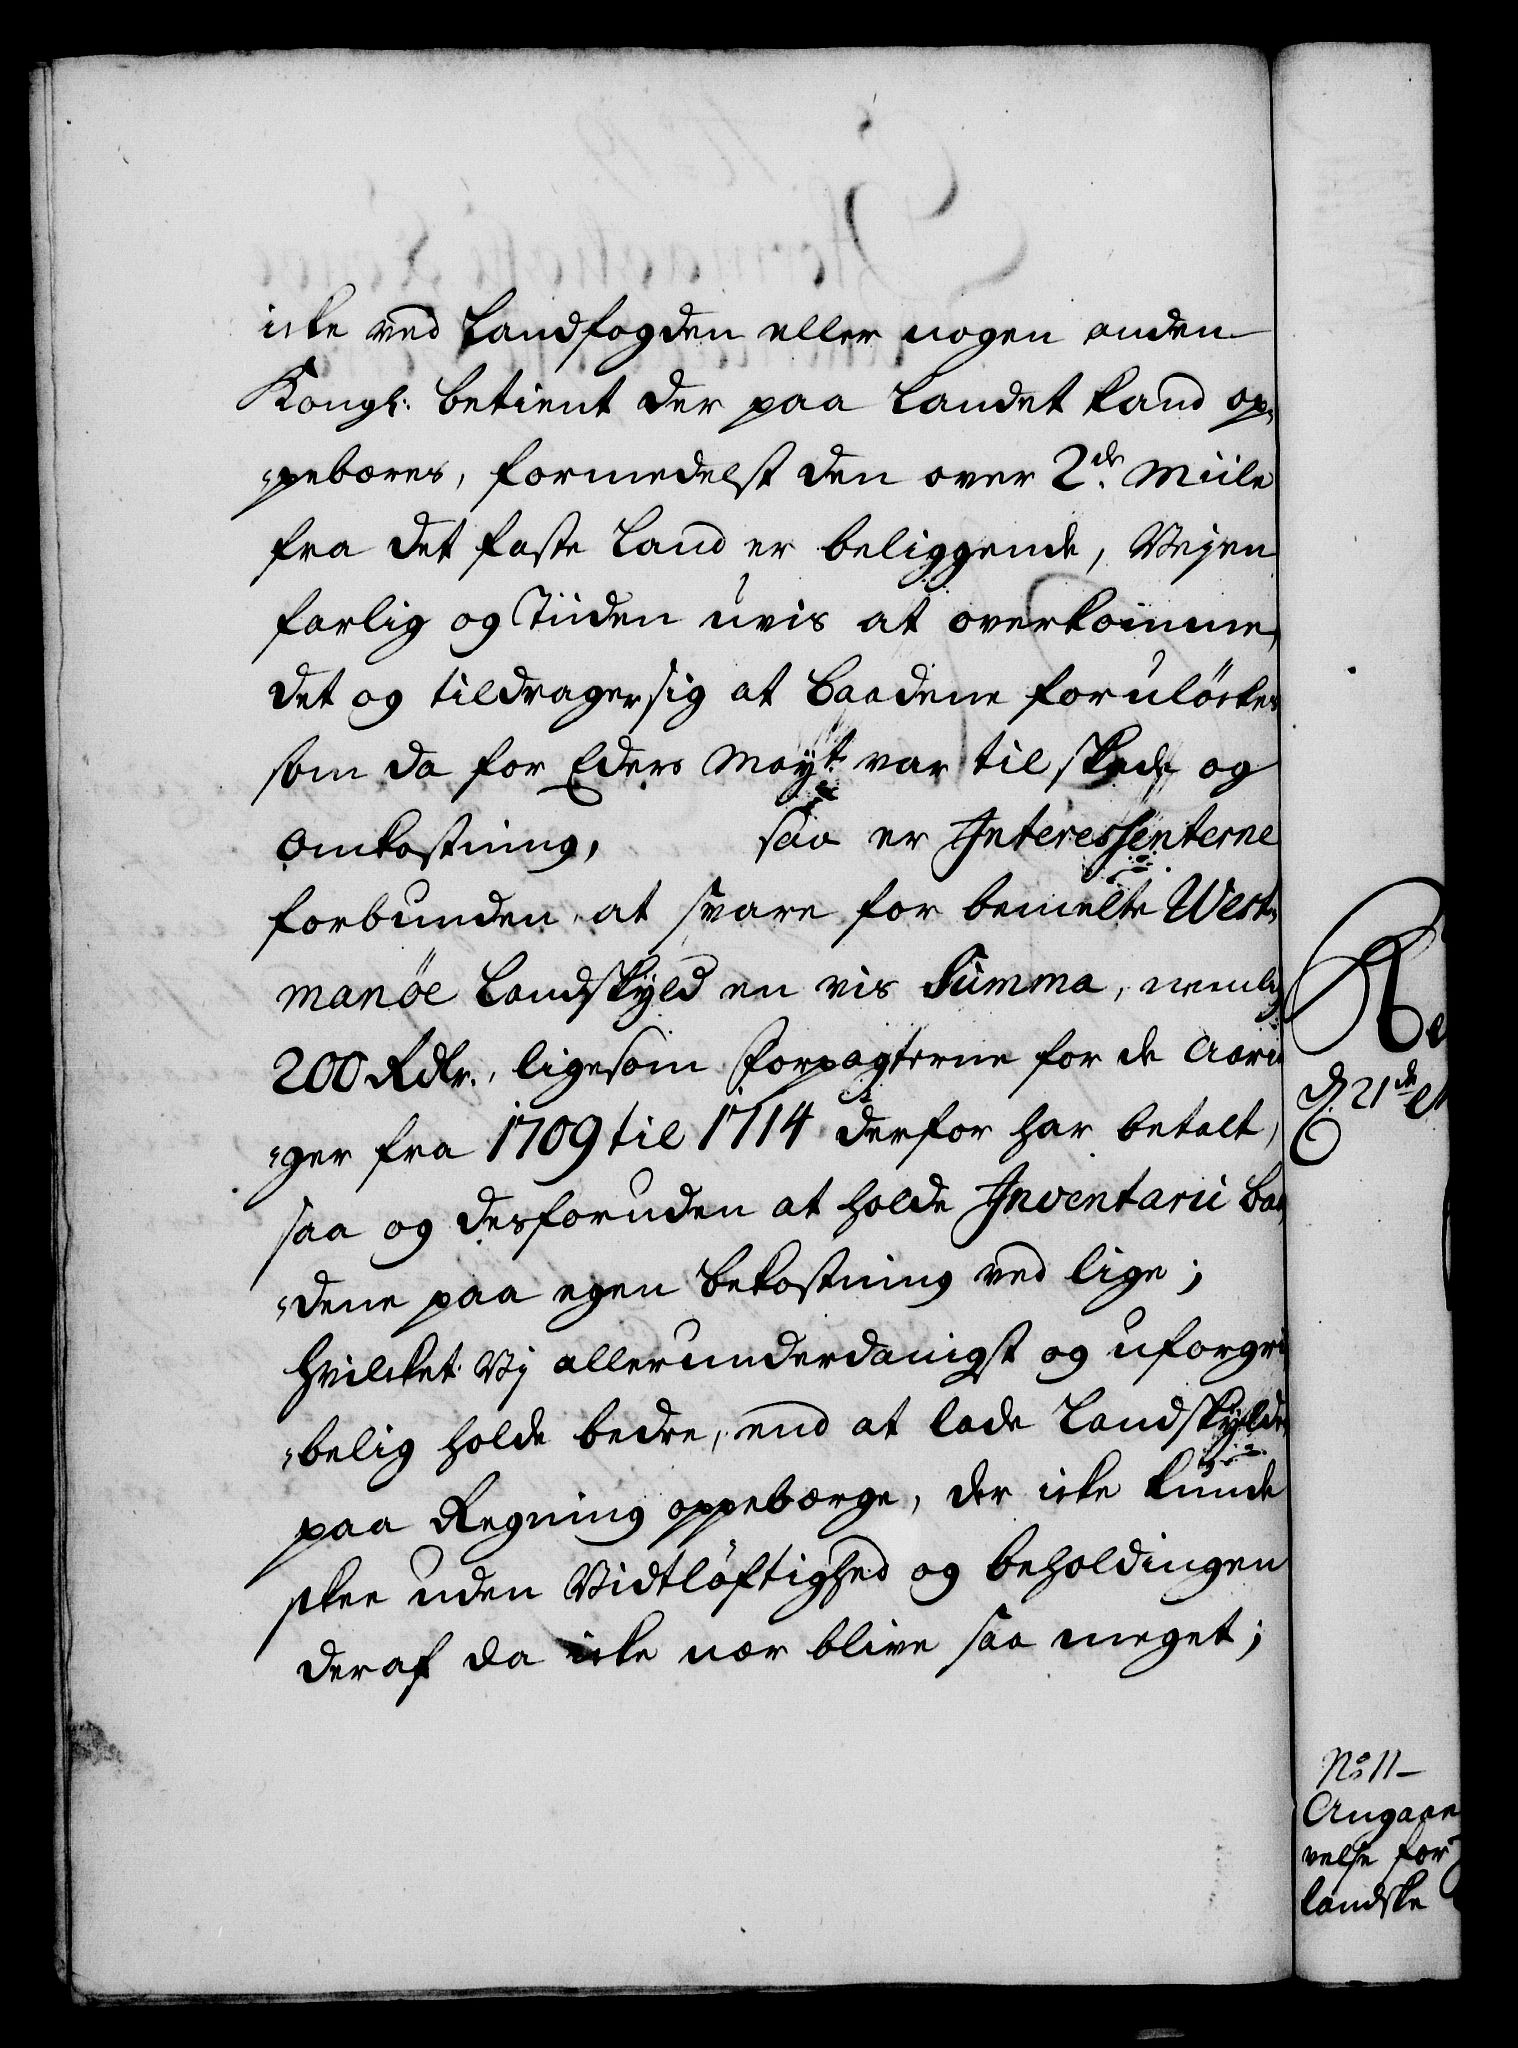 icke ved Landfogden eller nogen anden
Kongl: betient der paa Landet kand op„
„pebæres, formedelst den over 2de Miile
fra det faste Land er beliggende, Vejen
farlig og Tiiden uvis at overkomme,
det og tildrager sig at Baadene forulöcker
som da for Eders Mayt: var til skade og
omkostning, saa er Interessenterne
forbunden at svare for bemelte West„
manöe Landskyld en vis Summa, nemlig
200 Rdlr., ligesom Forpagterne for de Aarin„
„ger fra 1709 til 1714 derfor har betalt,
saa og desforuden at holde Inventarii Baa„
„dene paa egen Bekostning ved lige;
hvilcket Vj allerunderdanigst og uforgri
„belig holde bedre, end at lade Landskylden
paa Regning oppebærge, der icke kunde
skee uden Vidtlöftighed og beholdingen
deraf da icke nær blive saa meget;
Re
d. 21de
No 11
Angaaen
velse for
landske